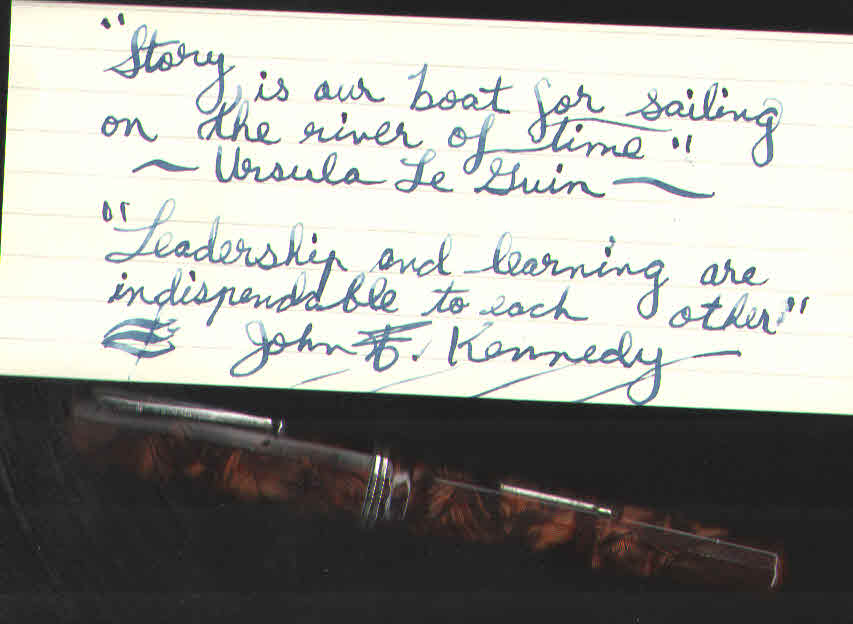 "Story is our boat for sailing
on the river of time"
~ Ursula Le Guin ~
"Leadership and learning are
indispendable to each other"
John F. Kennedy —